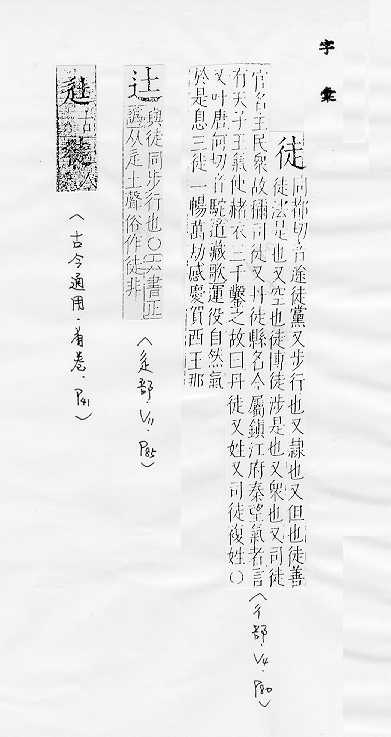 字彙
徒
同都切音途徒黨又步行也又隸也又但也徒善
徒法是也又空也徒博徒涉是也又衆也又司徒
官名主民衆故稱司徒又丹徒縣名今屬鎮江府秦望氣者言
有天子王氣使赭衣三千鑿之故曰丹徒又姓又司徒複姓○
又叶唐何切音駝道藏歌運役自然氣
於是息三徒一暢萬劫感慶賀西王那
(彳部.V4.P80)
𨑒
與徒同步行也○六書正
譌从辵土聲俗作徒非
(辵部.V11.P85)
古
徒今
(古今通用.首卷.P41)